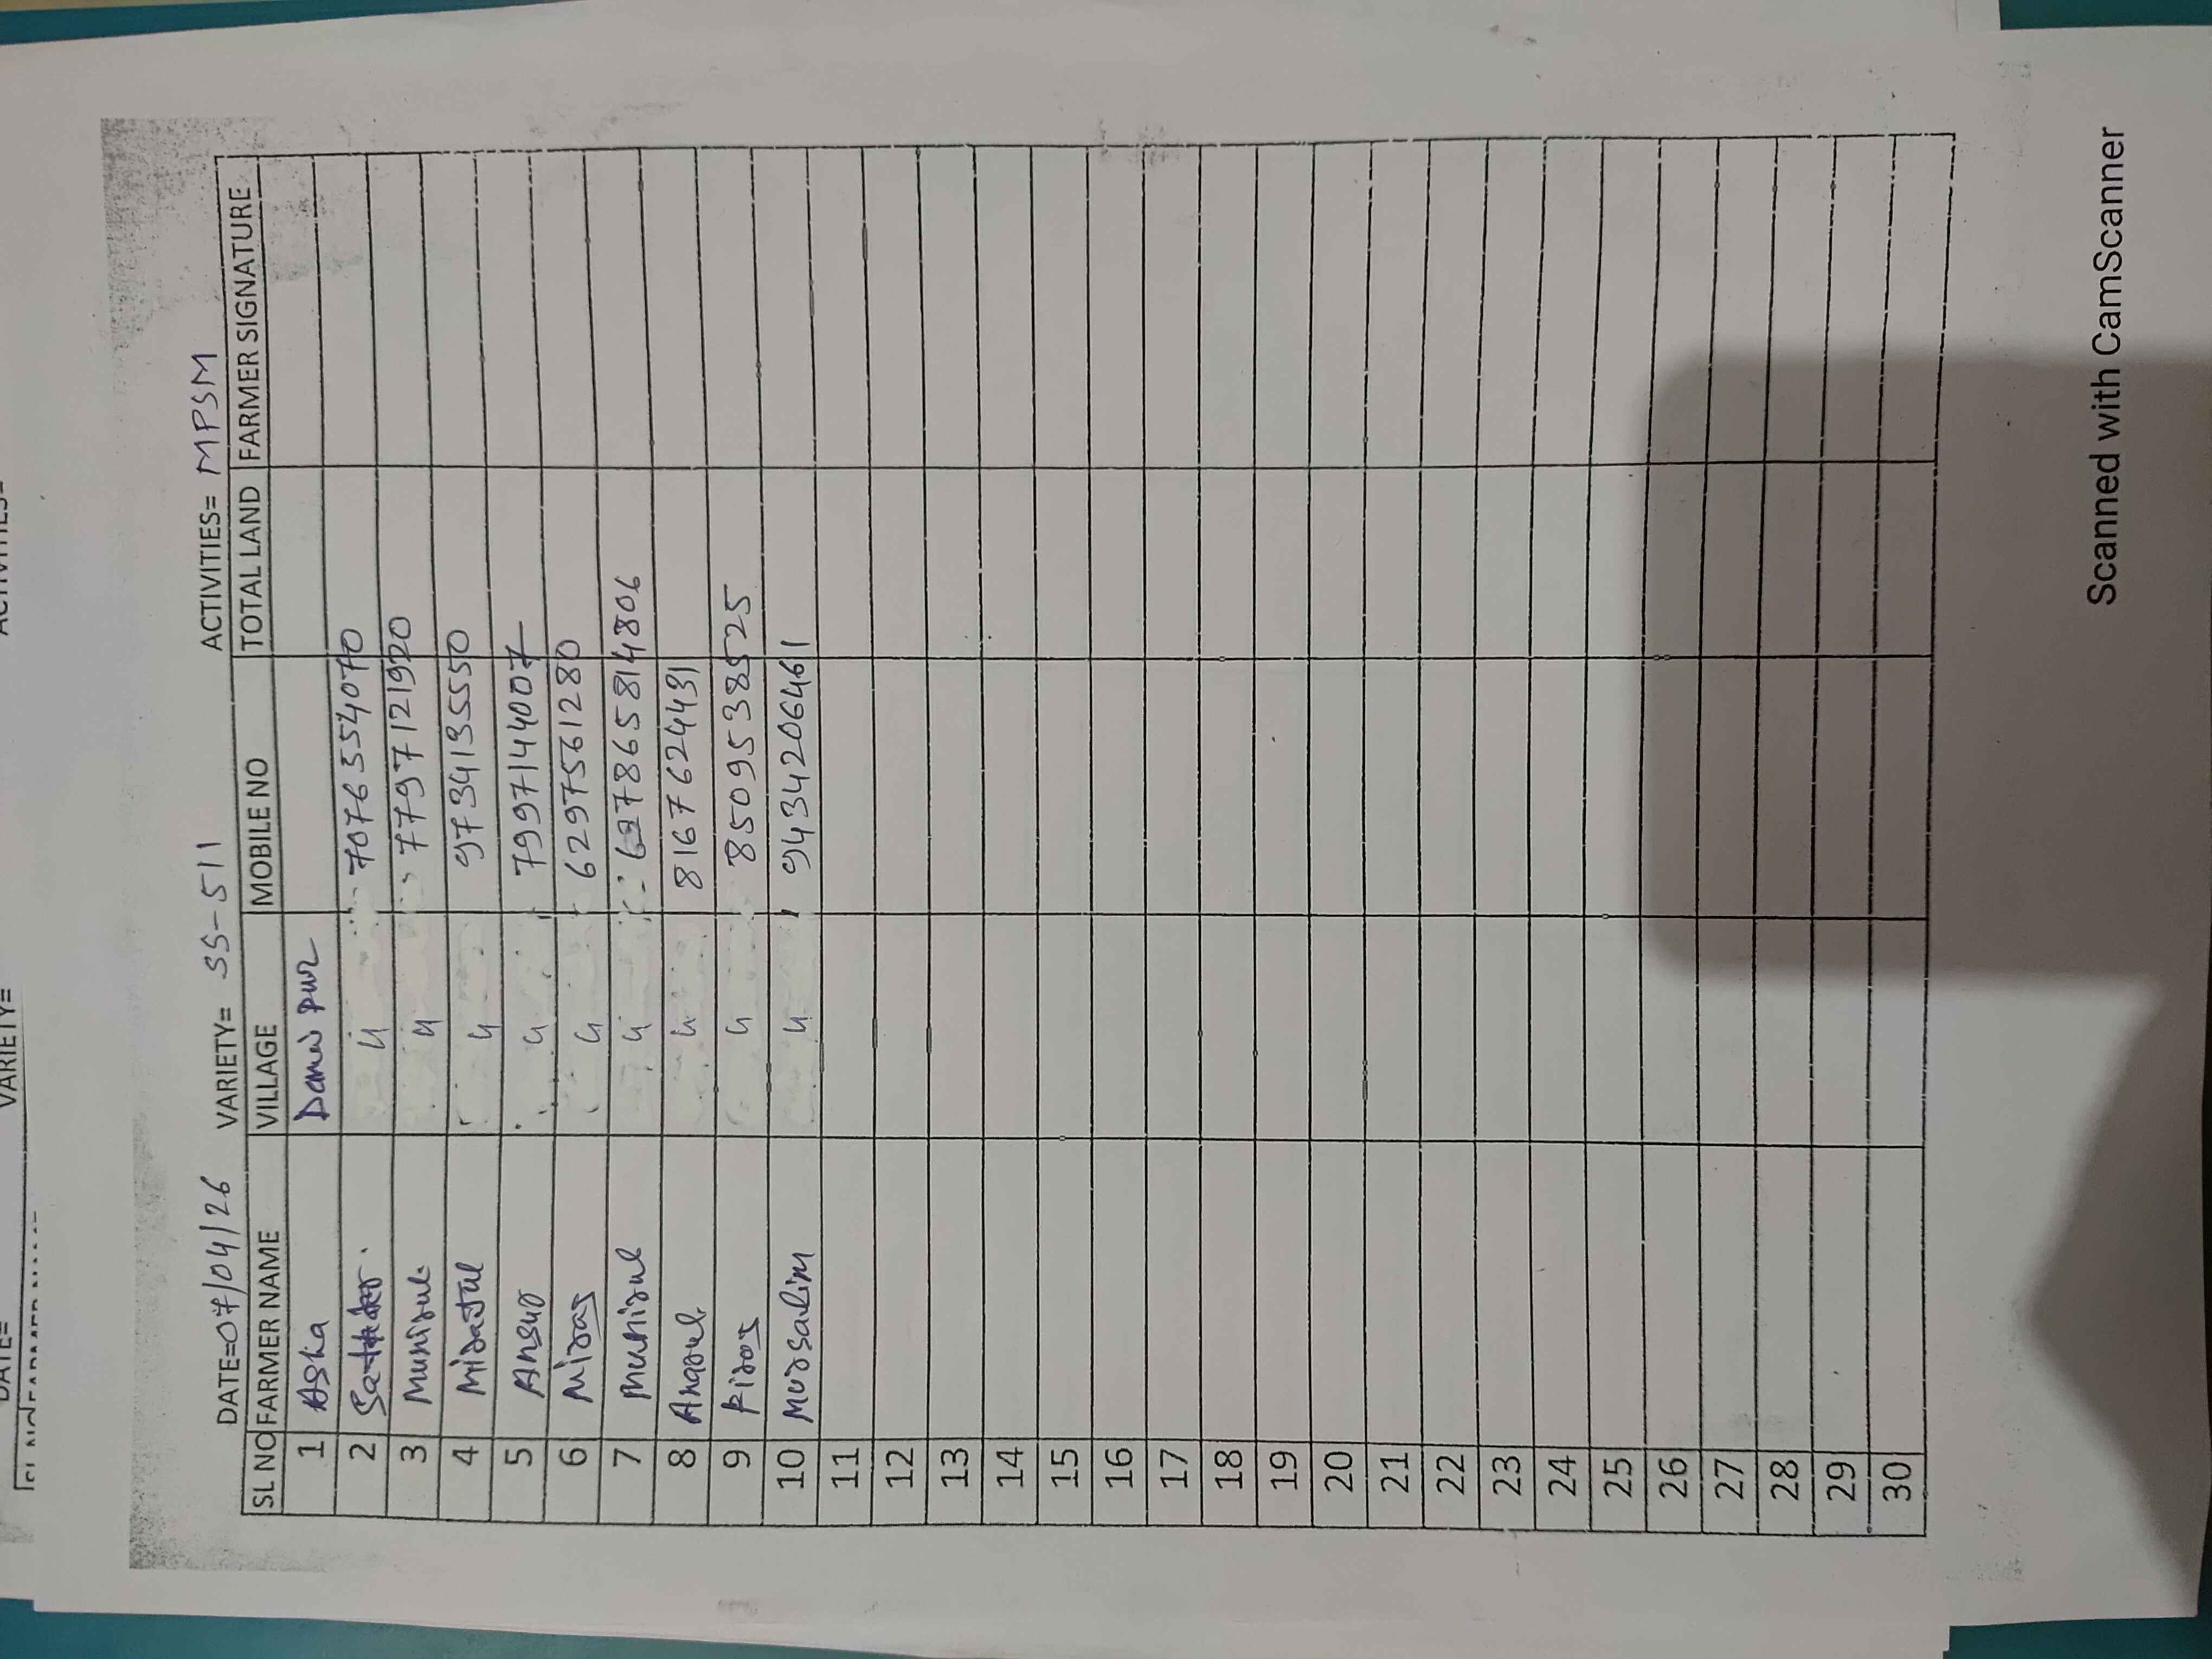 DATE=07/04/26 VARIETY= SS-511 ACTIVITIES= MPSM
SL NO FARMER NAME VILLAGE MOBILE NO TOTAL LAND FARMER SIGNATURE
1 Asha
2 Sattder. 〃 7076554070
3 Munirul 〃 7797121920
4 Mirajul 〃 9734135550
5 Ansur 〃 7997144007
6 Miraj 〃 6297561280
7 Munirul 〃
8 Anarul 〃 8167624431
9 Firoj 〃 8509538525
10 Mursalim 〃 9434206461
11
12
13
14
15
16
17
18
19
20
21
22
23
24
25
26
27
28
29
30
Scanned with CamScanner
VARIETY=
DATE=